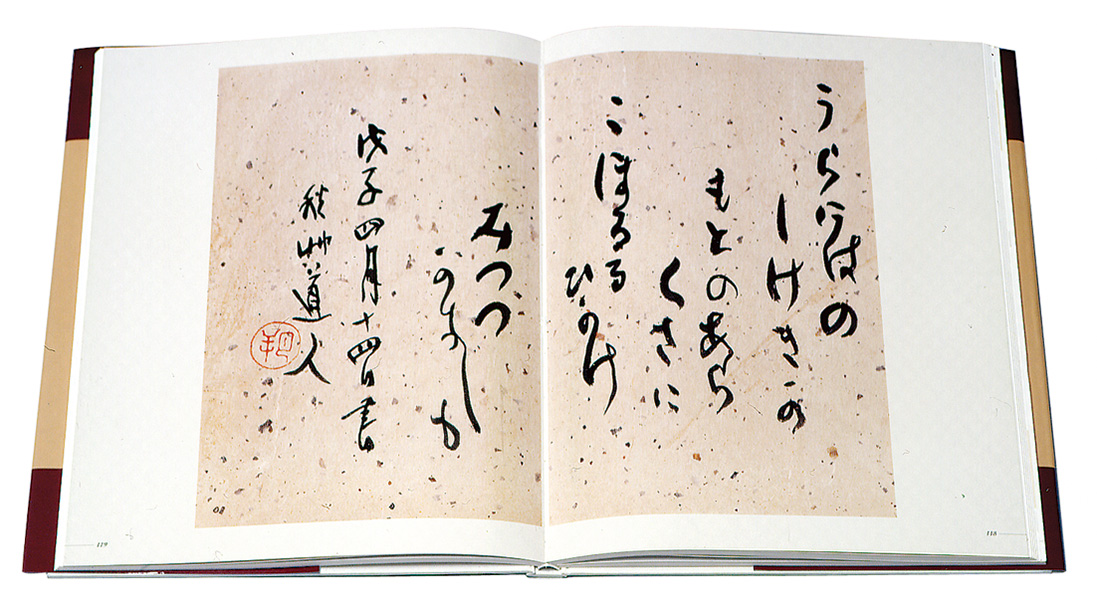 うらにはの
しけきか
もとのあら
くさに
こほるる
ひかけ
みつつ
かなしも
戊子四月十四日書
秋艸道人
118
119